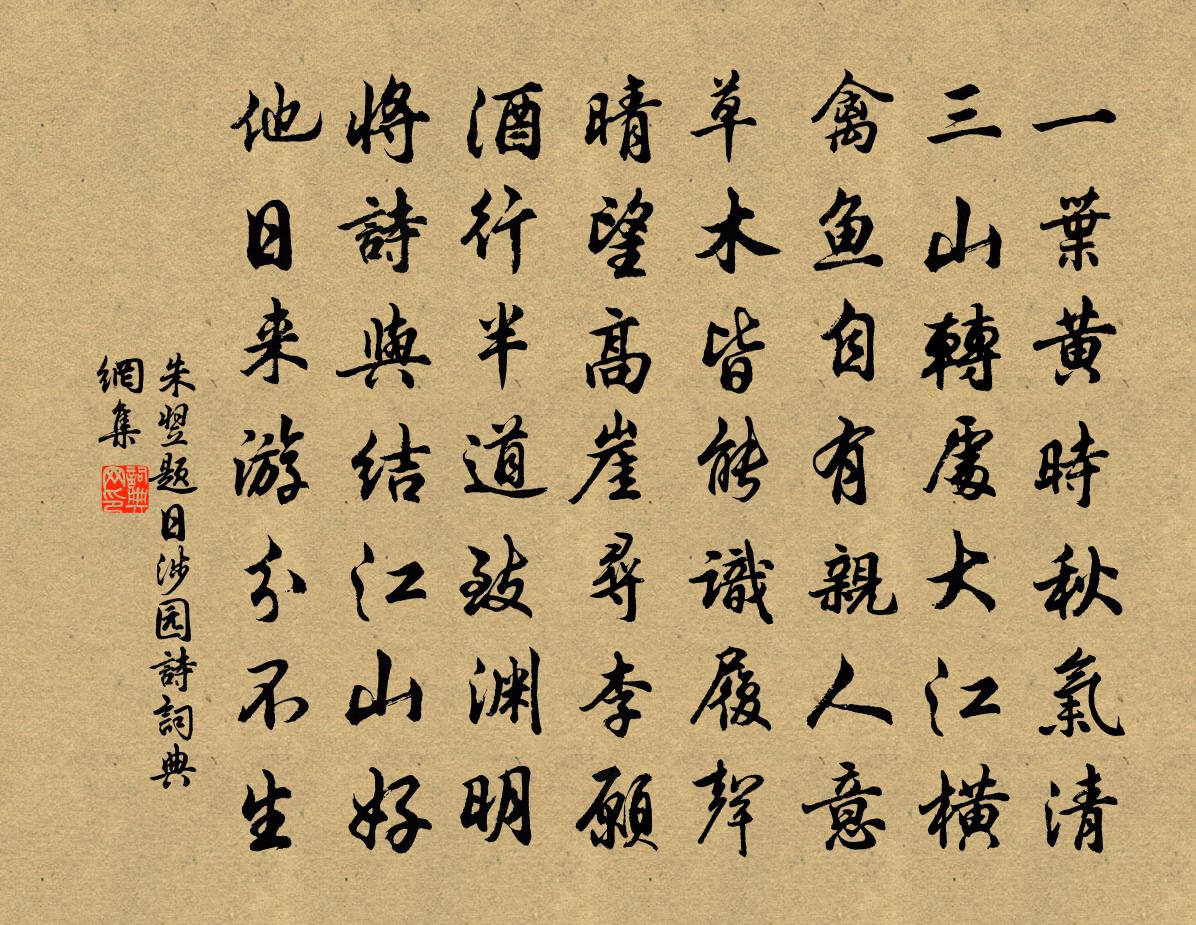 一葉黄時秋氣清
三山轉處大江橫
禽鱼自有親人意
草木皆能識履聲
晴望高崖尋李愿
酒行半道致渊明
將詩與结江山好
他日来游分不生
朱翌题日涉园詩詞典
網集
詞典网印